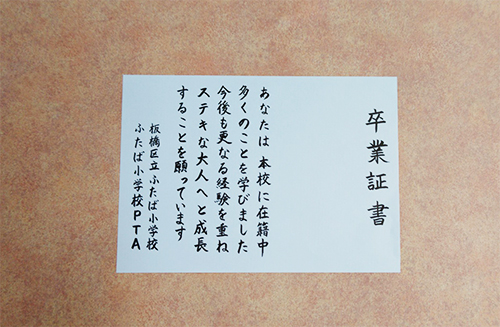 卒業証書
あなたは 本校に在籍中
多くのことを学びました
今後も更なる経験を重ね
ステキな大人へと成長
することを願っています
板橋区立ふたば小学校
ふたば小学校PTA